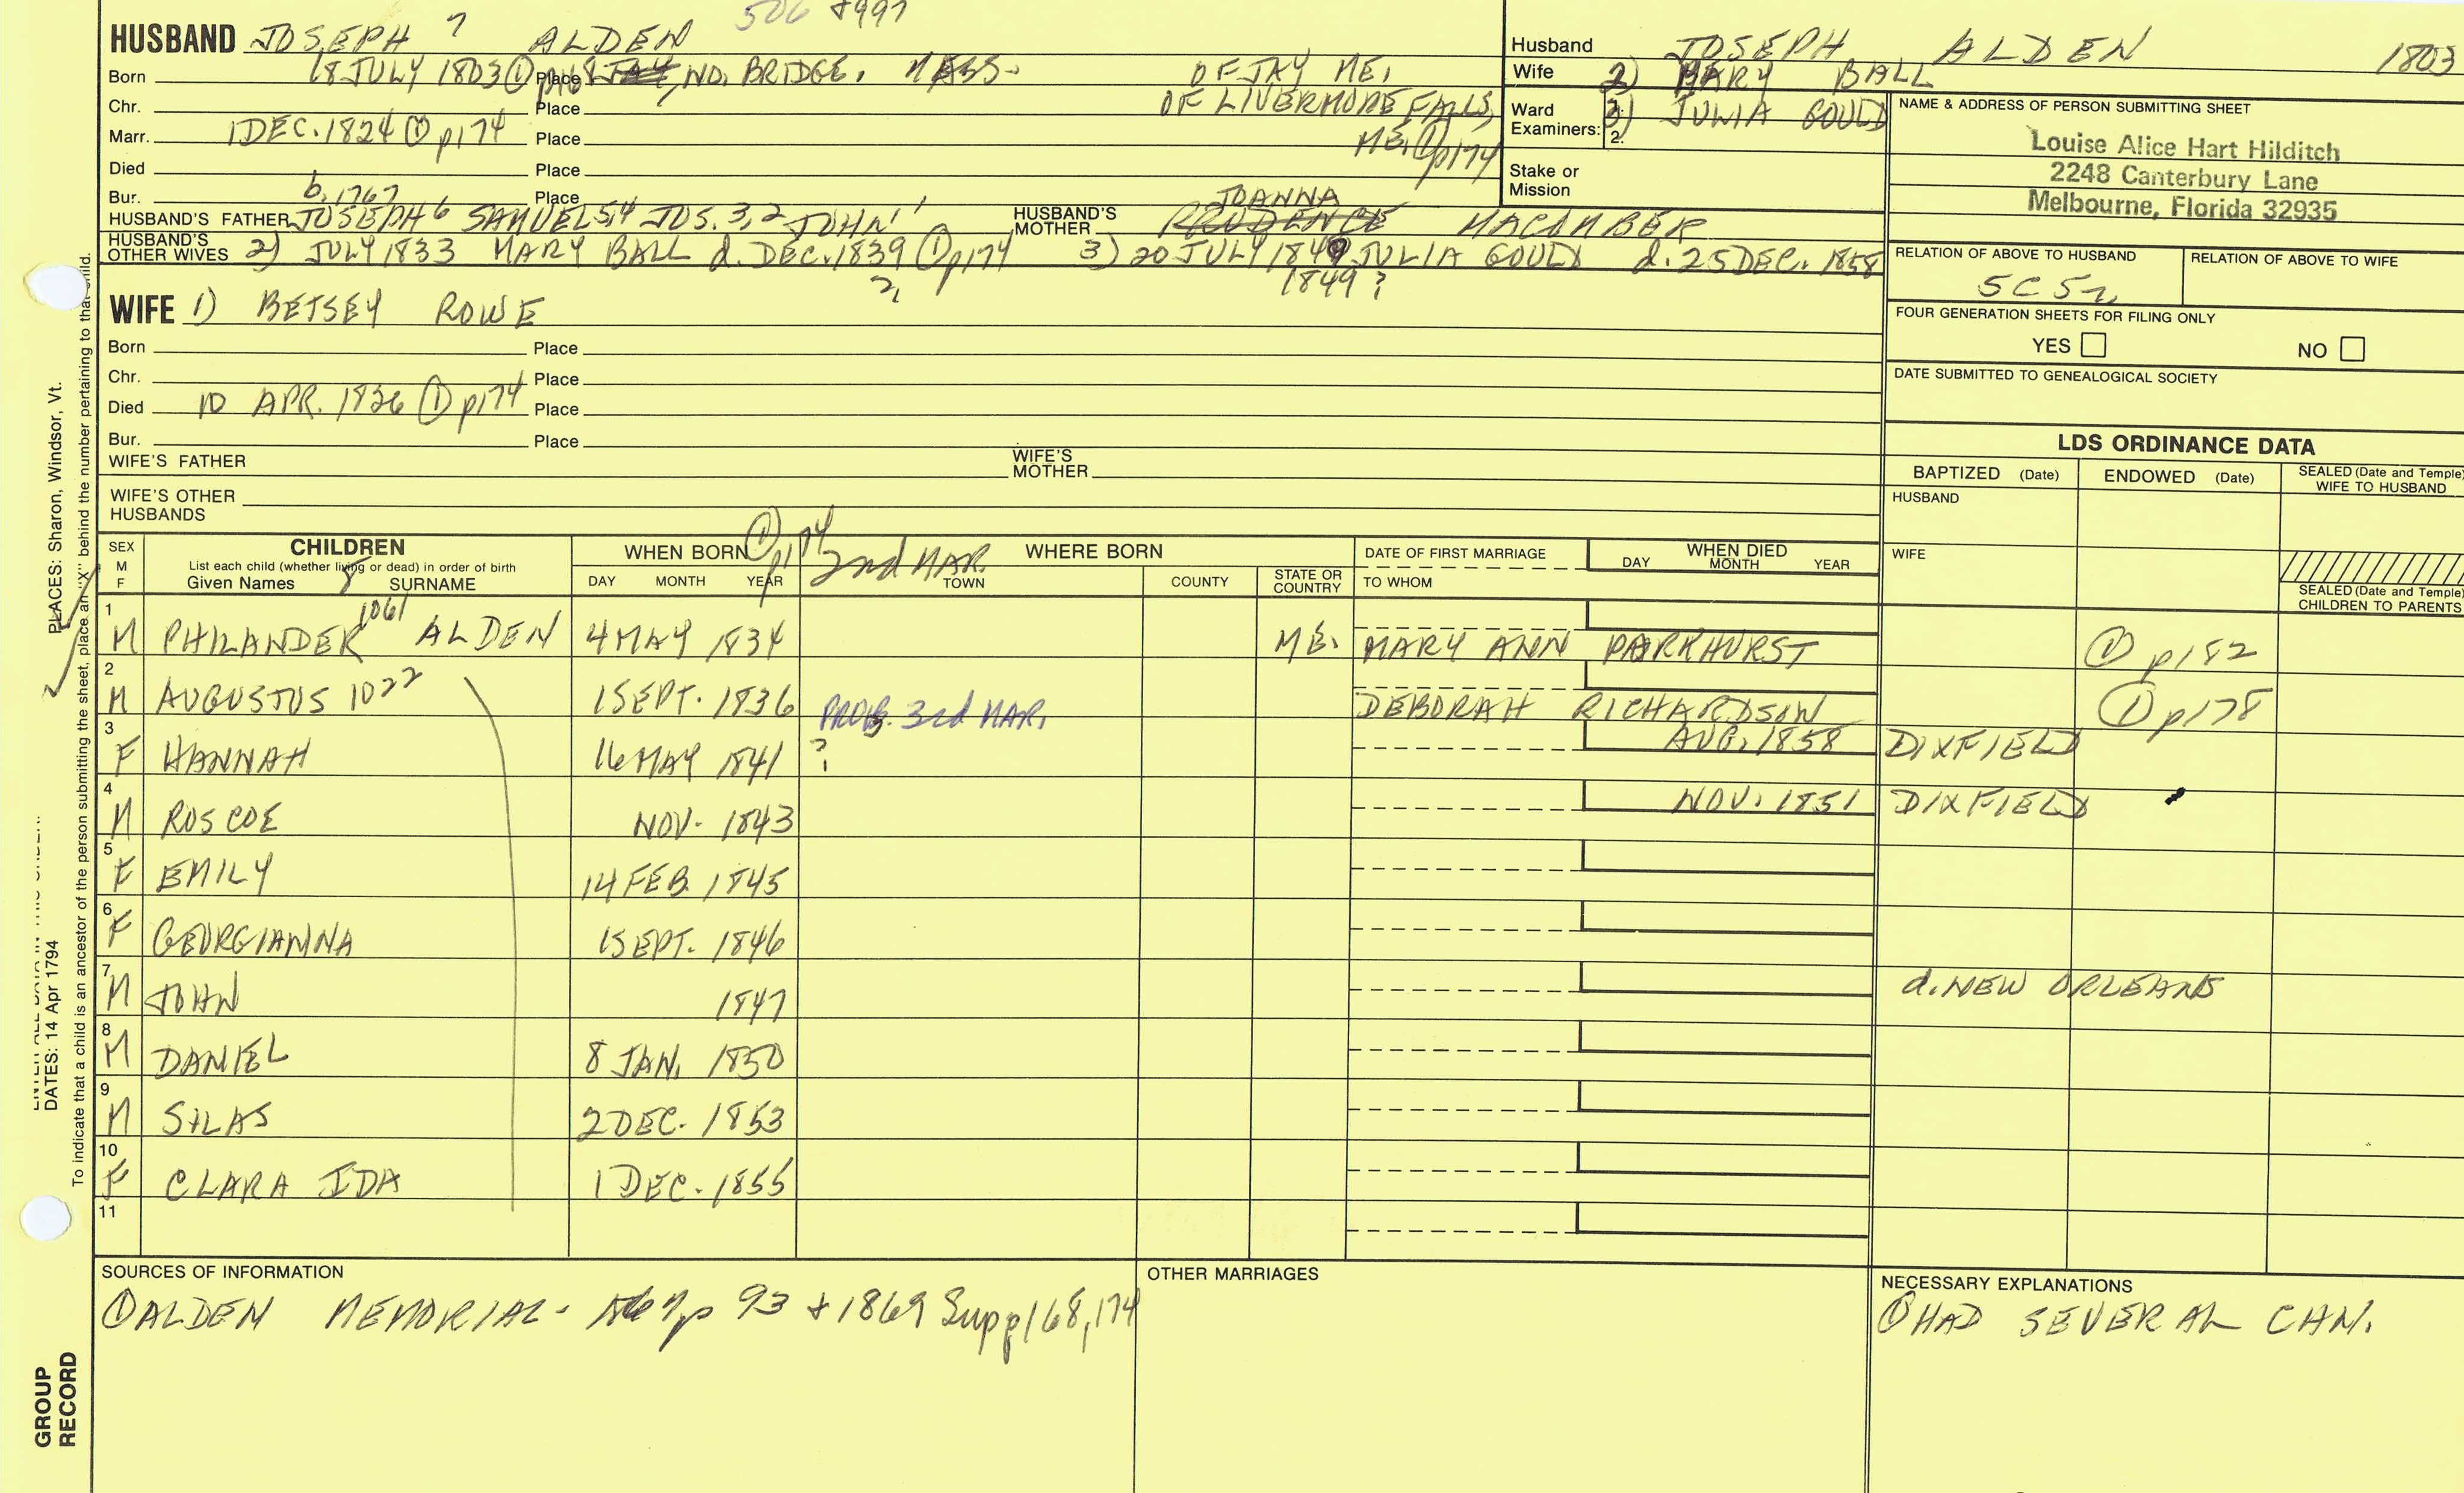 506 &997
HUSBAND JOSEPH 7 ALDEN
Born 18 JULY 1803 ① p168 Place JAY, NO. BRIDGE, MASS. OF JAY ME,
Chr. Place OF LIVERMORE FALLS,
Marr. 1 DEC. 1824 ① p174 Place ME, ① p174
Died Place
Bur. b. 1767 Place
HUSBAND'S FATHER JOSEPH 6 SAMUEL 5,4 JOS. 3,2 JOHN 1 HUSBAND'S MOTHER JOANNA PRUDENCE MACOMBER
HUSBAND'S OTHER WIVES 2) JULY 1833 MARY BALL d. DEC. 1839 ① p174 3) 20 JULY 1840 JULIA GOULD d. 25 DEC. 1858
1849?
WIFE 1) BETSEY ROWE
Born Place
Chr. Place
Died 10 APR. 1826 ① p174 Place
Bur. Place
WIFE'S FATHER WIFE'S MOTHER
WIFE'S OTHER HUSBANDS
Husband JOSEPH ALDEN 1803
Wife 2) MARY BALL
Ward 3) JULIA GOULD
Examiners: 2.
Stake or Mission
NAME & ADDRESS OF PERSON SUBMITTING SHEET
Louise Alice Hart Hilditch
2248 Canterbury Lane
Melbourne, Florida 32935
RELATION OF ABOVE TO HUSBAND RELATION OF ABOVE TO WIFE
5C5r
FOUR GENERATION SHEETS FOR FILING ONLY
YES NO
DATE SUBMITTED TO GENEALOGICAL SOCIETY
LDS ORDINANCE DATA
BAPTIZED (Date) ENDOWED (Date) SEALED (Date and Temple) WIFE TO HUSBAND
HUSBAND
WIFE
SEALED (Date and Temple) CHILDREN TO PARENTS
SEX M F
CHILDREN
List each child (whether living or dead) in order of birth
Given Names 8 SURNAME
WHEN BORN ① p174
DAY MONTH YEAR
2nd MAR. WHERE BORN
TOWN COUNTY STATE OR COUNTRY
DATE OF FIRST MARRIAGE
TO WHOM
WHEN DIED
DAY MONTH YEAR
1 M PHILANDER 1061 ALDEN 4 MAY 1834 ME. MARY ANN PARKHURST ① p182
2 M AUGUSTUS 1022 1 SEPT. 1836 PROB. 3rd MAR. DEBORAH RICHARDSON ① p178
3 F HANNAH 16 MAY 1841 ? AUG. 1858 DIXFIELD
4 M ROSCOE NOV. 1843 NOV. 1851 DIXFIELD
5 F EMILY 14 FEB. 1845
6 F GEORGIANNA 1 SEPT. 1846
7 M JOHN 1847 d. NEW ORLEANS
8 M DANIEL 8 JAN. 1850
9 M SILAS 2 DEC. 1853
10 F CLARA IDA 1 DEC. 1855
11
SOURCES OF INFORMATION
① ALDEN MEMORIAL- p 93 + 1869 Supp 168, 174
OTHER MARRIAGES
NECESSARY EXPLANATIONS
① HAD SEVERAL CHN.
PLACES: Sharon, Windsor, Vt.
DATES: 14 Apr 1794
To indicate that a child is an ancestor of the person submitting the sheet, place an "X" behind the number pertaining to that child.
GROUP
RECORD